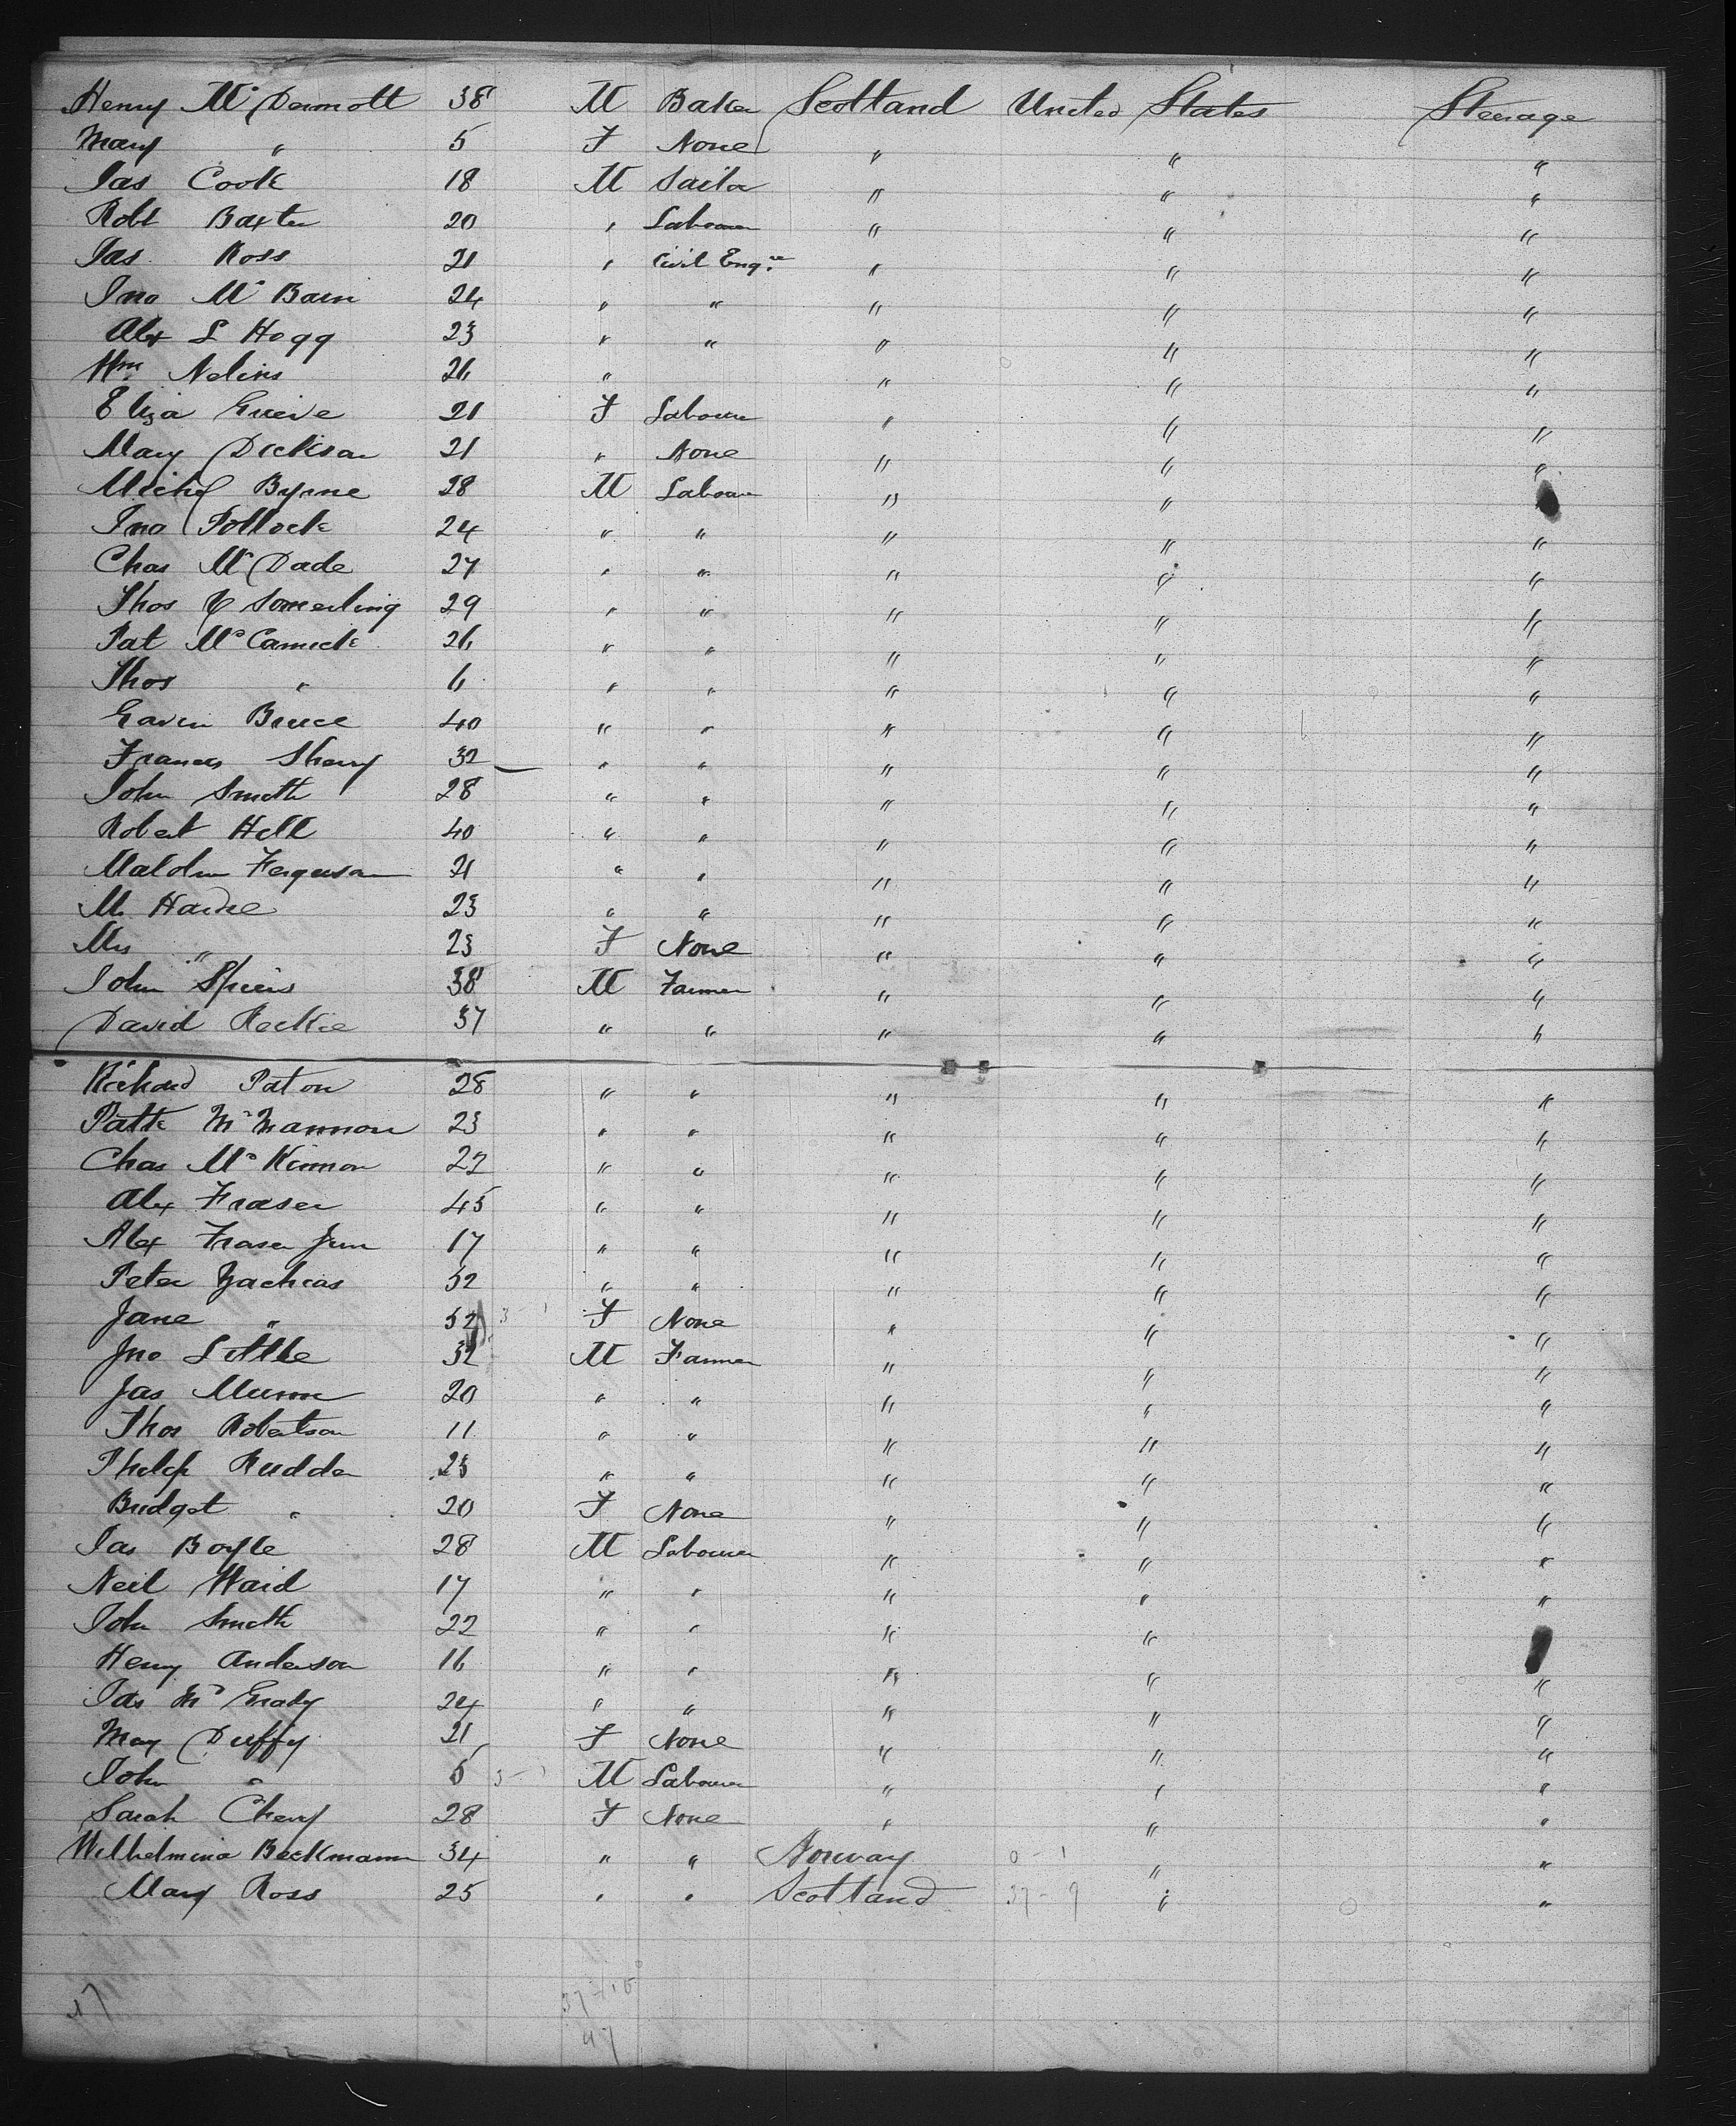 Henry McDermott 38 M Baker Scotland United States Steerage
Mary " 5 F None " " "
Jas Cook 18 M Sailor " " "
Robt Baxter 20 " Labourer " " "
Jas. Ross 21 " Civil Engr " " "
Jno McBain 24 " " " " "
Alex L Hogg 23 " " " " "
Wm 26 " " " "
Eliza Grieve 21 F Labourer " " "
Mary Dickson 21 " None " " "
Michl Byrne 28 M Labourer " "
Jno Pollock 24 " " " " "
Chas McDade 27 " " " " "
Thos 29 " " " " "
Pat McCamick 26 " " " " "
Thos " 6 " " " " "
Gavin Bruce 40 " " " " "
Frances Sherry 32 " " " " "
John Smith 28 " " " " "
Robert Hill 40 " " " " "
Malolm Ferguson 21 " " " " "
M. 23 " " " " "
Mrs " 23 F None " " "
John Spiers 38 M Farmer " " "
David Reckie 37 " " " " "
Richard Paton 28 " " " " "
Patk 23 " " " " "
Chas McKinnon 22 " " " " "
Alex Fraser 45 " " " " "
Alex Fraser Jun 17 " " " " "
Peter 52 " " " " "
Jane " 52 F None " " "
Jno Little 32 M Farmer " " "
Jas Munn 20 " " " " "
Thos Robertson 11 " " " " "
Philip Rudden 23 " " " " "
Bridget " 20 F None " " "
Jas Boyle 28 M Labourer " " "
Neil Waid 17 " " " " "
John Smith 22 " " " "
Henry Anderson 16 " " " " "
Jas McGrady 24 " " " " "
May Duffy 21 F None " " "
John " 5 3-1 M Labourer " " "
Sarah Cherry 28 F None " " "
Wilhelmina Beckmann 34 " " Norway 0-1 " "
Mary Ross 25 " " Scotland 37-9 " "
47 37-10
47